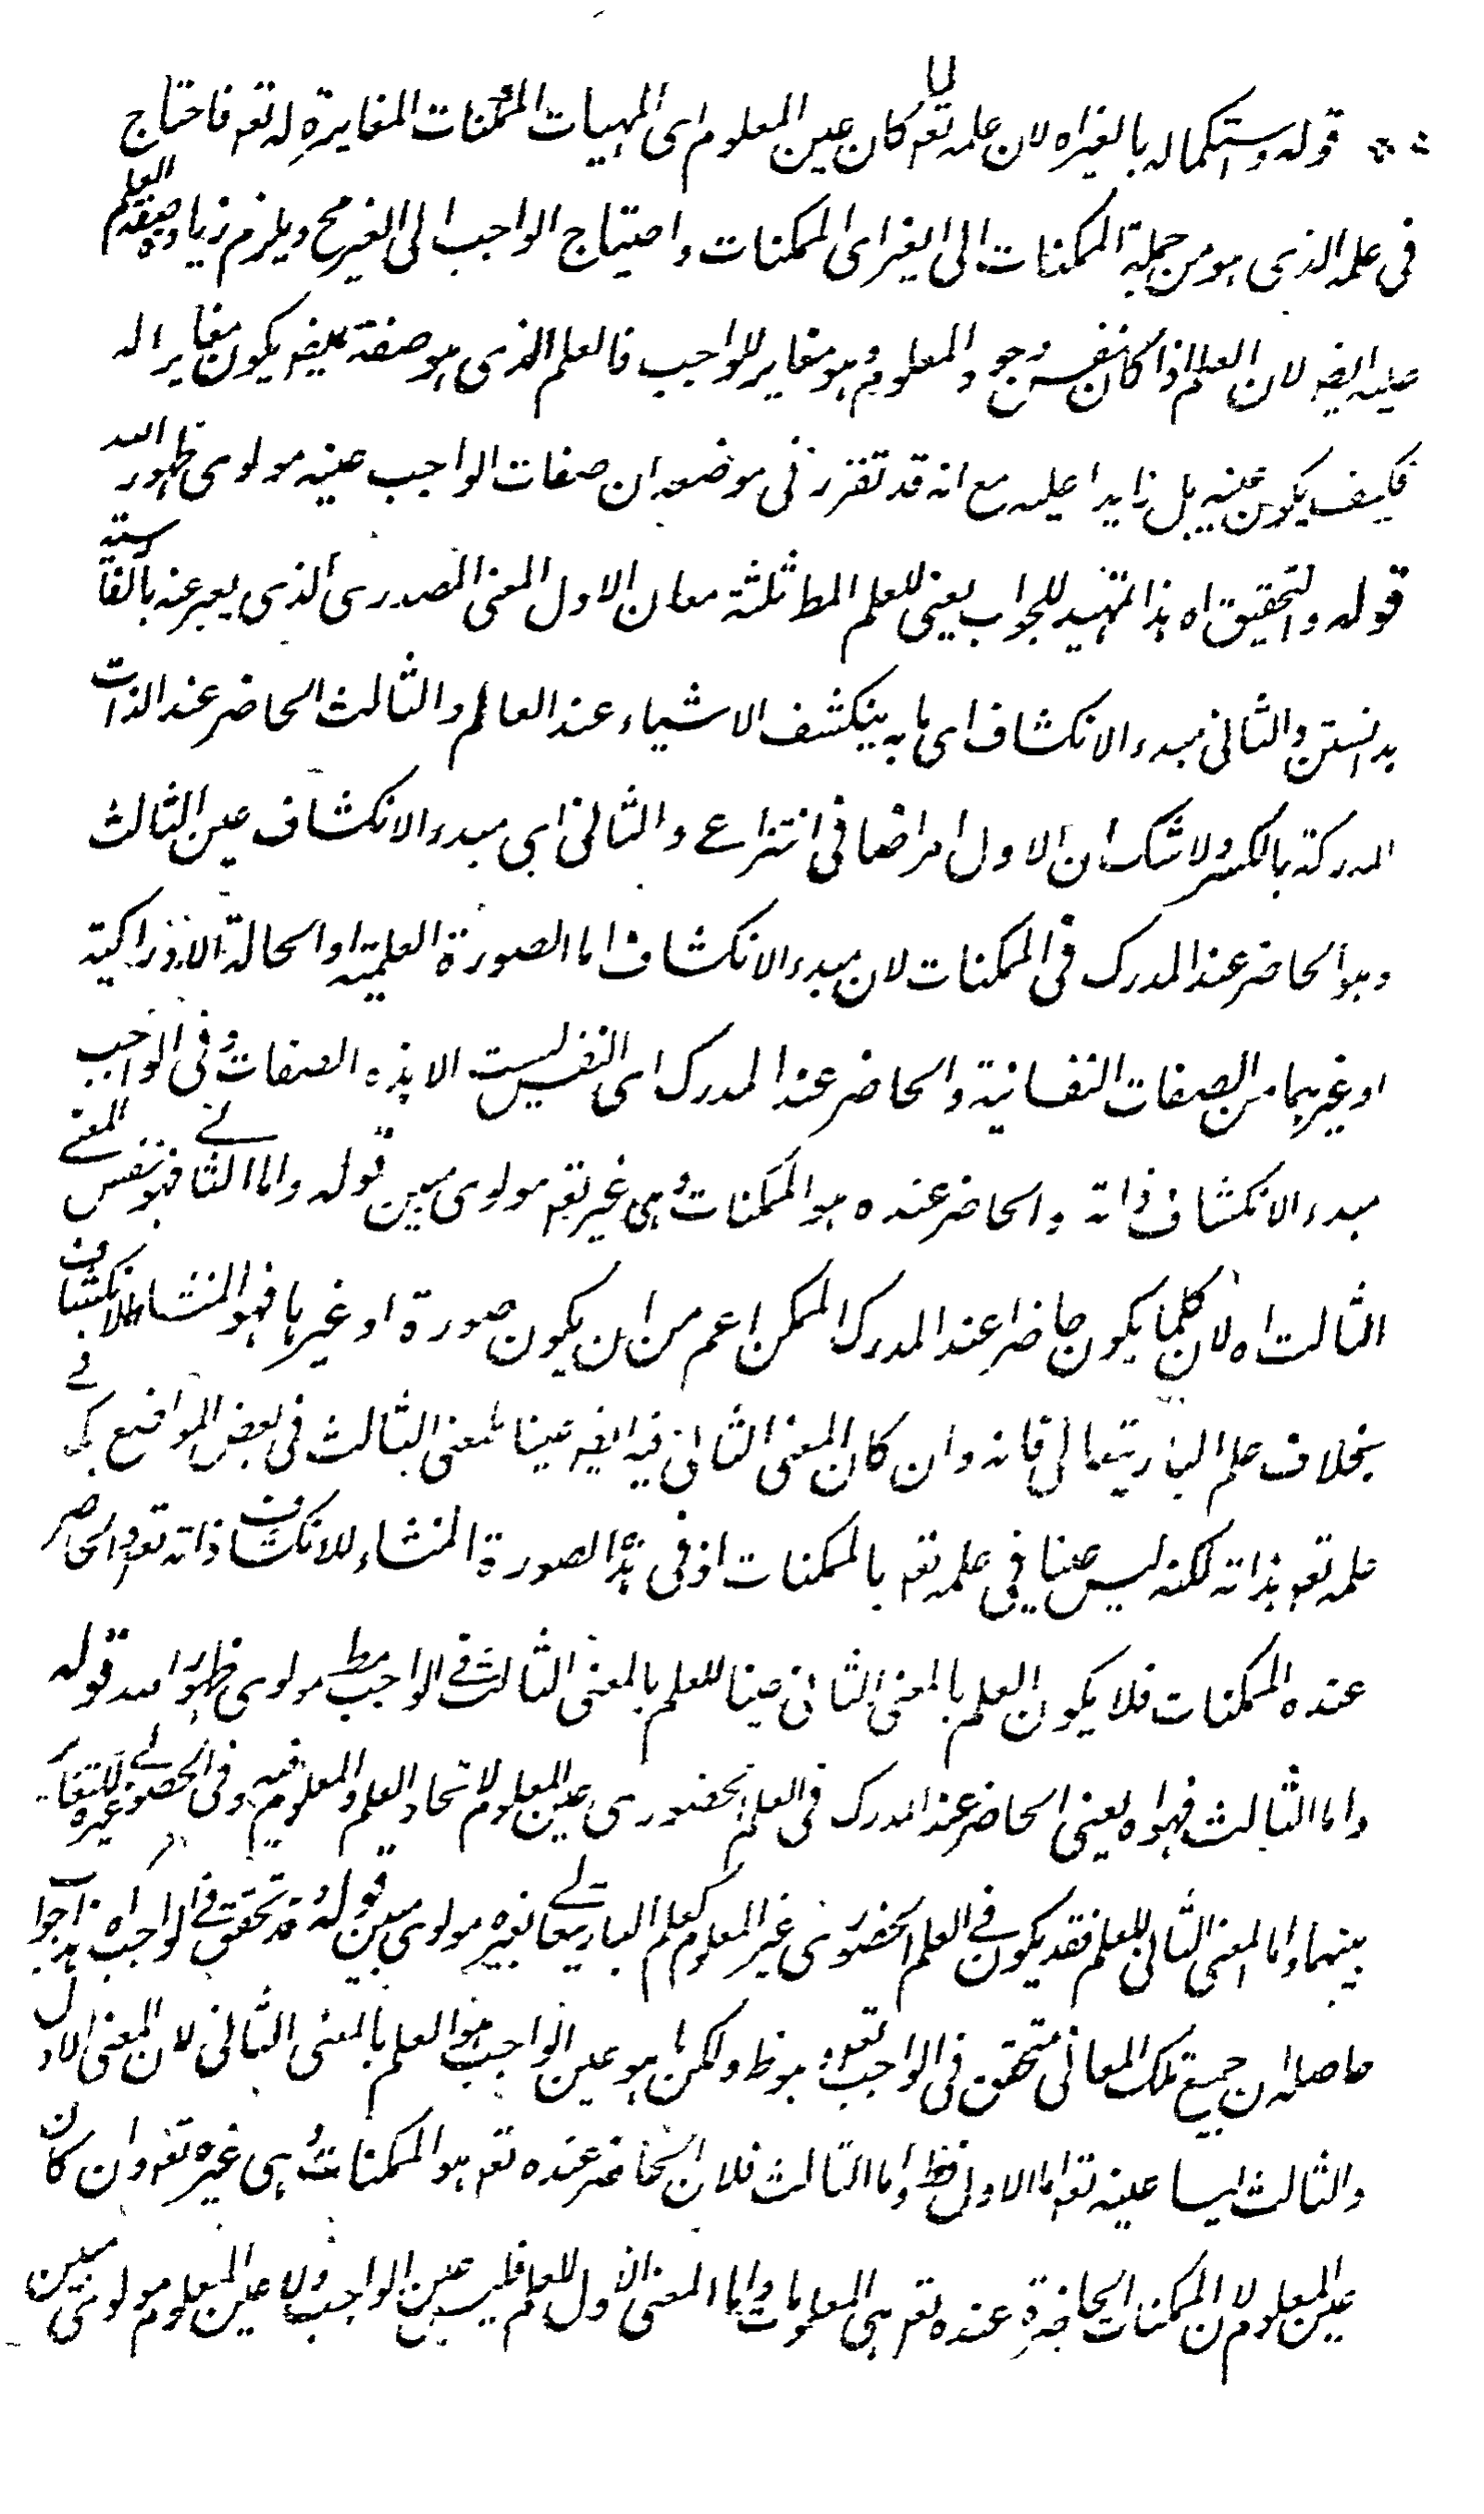 قوله واستكماله بالغير اه لان علمه تعه لما كان عين المعلوم اى المهيات الممكنات المغايرة له تعه فاحتاج
فى علمه الذى هو من جملة الممكنات الى الغير اى الممكنات واحتياج الواجب الى الغير مح ويلزم زيادة صفة العلم
عليه ايضه لان العلم اذا كان نفس وجود المعلوم وهو مغاير للواجب فالعلم الذى هو صفة ايضه يكون مغايرا له
فكيف يكون عينه بل زايدا عليه مع انه قد تقرر فى موضعه ان صفات الواجب عينه مولوى ظهور الله
قوله والتحقيق اه هذا تمهيد للجواب يعنى للعلم المط ثلثة معان الاول المعنى المصدرى الذى يعبر عنه بالفارسية
بدانستن والثانى مبدء الانكشاف اى ما به ينكشف الاشياء عند العالم والثالث الحاضر عند الذات
المدركة بالكسر ولا شك ان الاول امر اضافى انتزاعے والثانى اى مبدء الانكشاف عين الثالث
وهو الحاضر عند المدرك فى الممكنات لان مبدء الانكشاف اما الصورة العلمية او الحالة الادراكية
او غيرهما من الصفات النفسانية والحاضر عند المدرك اى النفس ليست الا هذه الصفات وفى الواجب
مبدء الانكشاف ذاته والحاضر عنده هو الممكنات وهى غيره تعه مولوى مبين قوله واما الثانے فهو نفس المعنے
الثالث اه لان كلما يكون حاضرا عند المدرك الممكن اعم من ان يكون صورة او غيرها فهو المنشاء للانكشاف
بخلاف علم البارى تعالى فانه وان كان المعنى الثانى فيه ايضه عينا للمعنى الثالث فى بعض المواضع كما فے
علمه تعه بذاته لكنه ليس عينا فى علمه تعه بالممكنات اذ فى هذا الصورة المنشاء للانكشاف ذاته تعه والحاضر
عنده الممكنات فلا يكون العلم بالمعنى الثانى عينا للعلم بالمعنى الثالث فى الواجب مط مولوى ظهور الله قوله
واما الثالث فهو اه يعنى الحاضر عند المدرك فى العلم الحضورى عين المعلوم لاتحاد العلم والمعلوم فيه وفى الحصولے غيره للتغاير
بينهما واما المعنى الثانى للعلم فقد يكون فى العلم الحضورى غير المعلوم كعلم البارى تعالے بغيره مولوى مبين قوله وقد تحقق فى الواجب اه هذا جواب
حاصله ان جميع تلك المعانى متحقق فى الواجب تعه وهو ظ ولكن ما هو عين الواجب هو العلم بالمعنى الثانى لان المعنى الاول
والثالث ليسا عينه تعه اما الاول فظ واما الثالث فلان الحاضر عنده تعه هو الممكنات وهى غيره تعه وان كان
عين المعلوم لان الممكنات الحاضرة عنده تعه هى المعلومات واما المعنى الاول للعلم فليس عين الواجب ولا عين المعلوم مولوى مبين